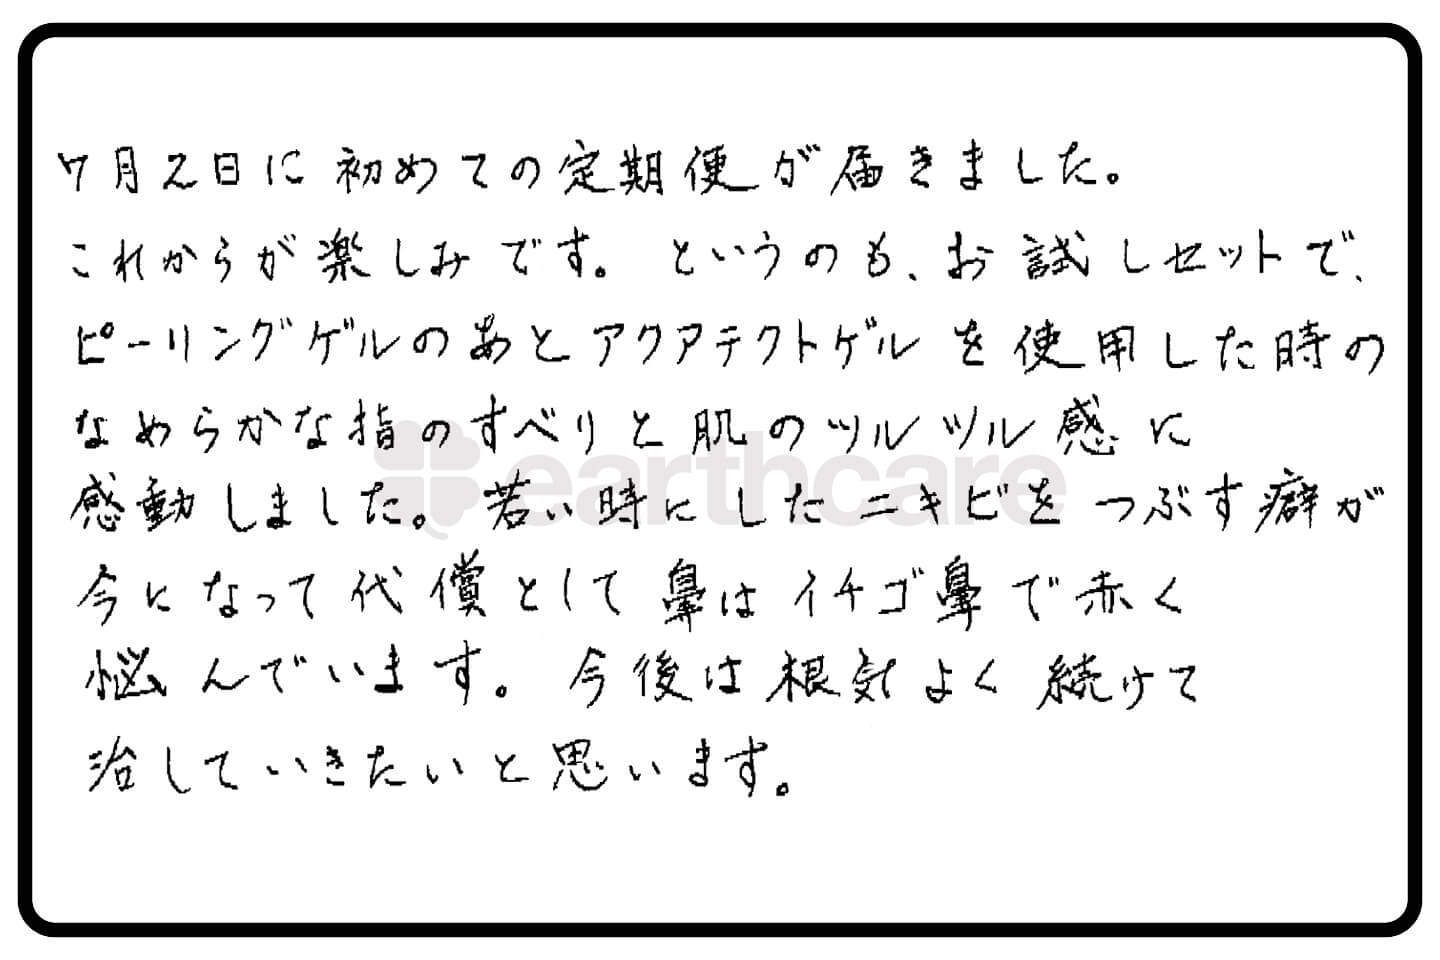 7月2日に初めての定期便が届きました。
これからが楽しみです。というのも、お試しセットで、
ピーリングゲルのあとアクアテクトゲルを使用した時の
なめらかな指のすべりと肌のツルツル感に
感動しました。若い時にしたニキビをつぶす癖が
今になって代償として鼻はイチゴ鼻で赤く
悩んでいます。今後は根気よく続けて
治していきたいと思います。
earthcare